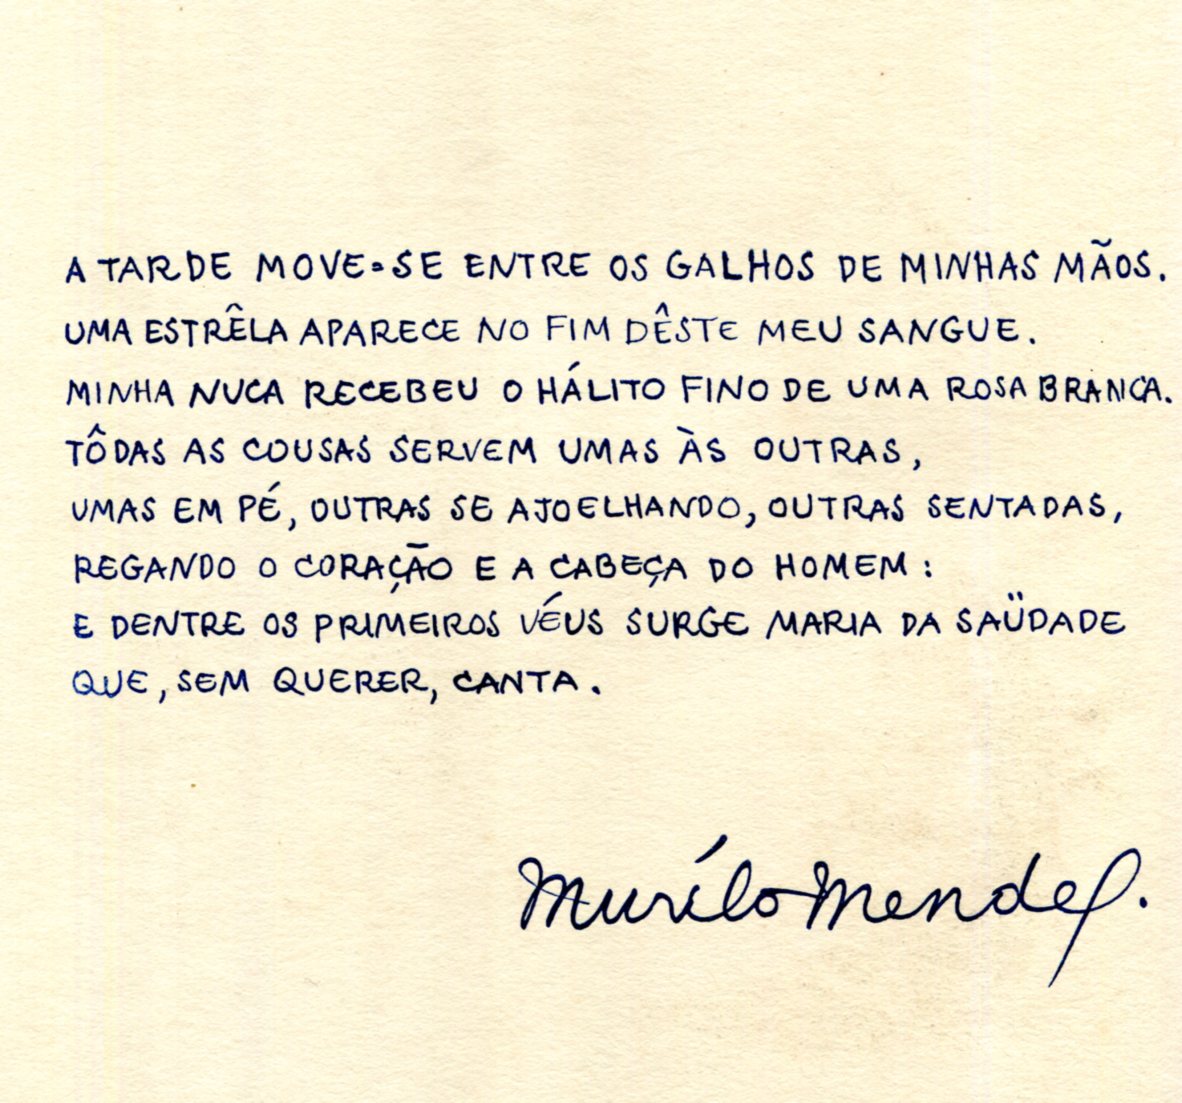 A TARDE MOVE-SE ENTRE OS GALHOS DE MINHAS MÃOS.
UMA ESTRÊLA APARECE NO FIM DÊSTE MEU SANGUE.
MINHA NUCA RECEBEU O HÁLITO FINO DE UMA ROSA BRANCA.
TÔDAS AS COUSAS SERVEM UMAS ÀS OUTRAS,
UMAS EM PÉ, OUTRAS SE AJOELHANDO, OUTRAS SENTADAS,
REGANDO O CORAÇÃO E A CABEÇA DO HOMEM:
E DENTRE OS PRIMEIROS VÉUS SURGE MARIA DA SAÜDADE
QUE, SEM QUERER, CANTA.
Murílo Mendes.